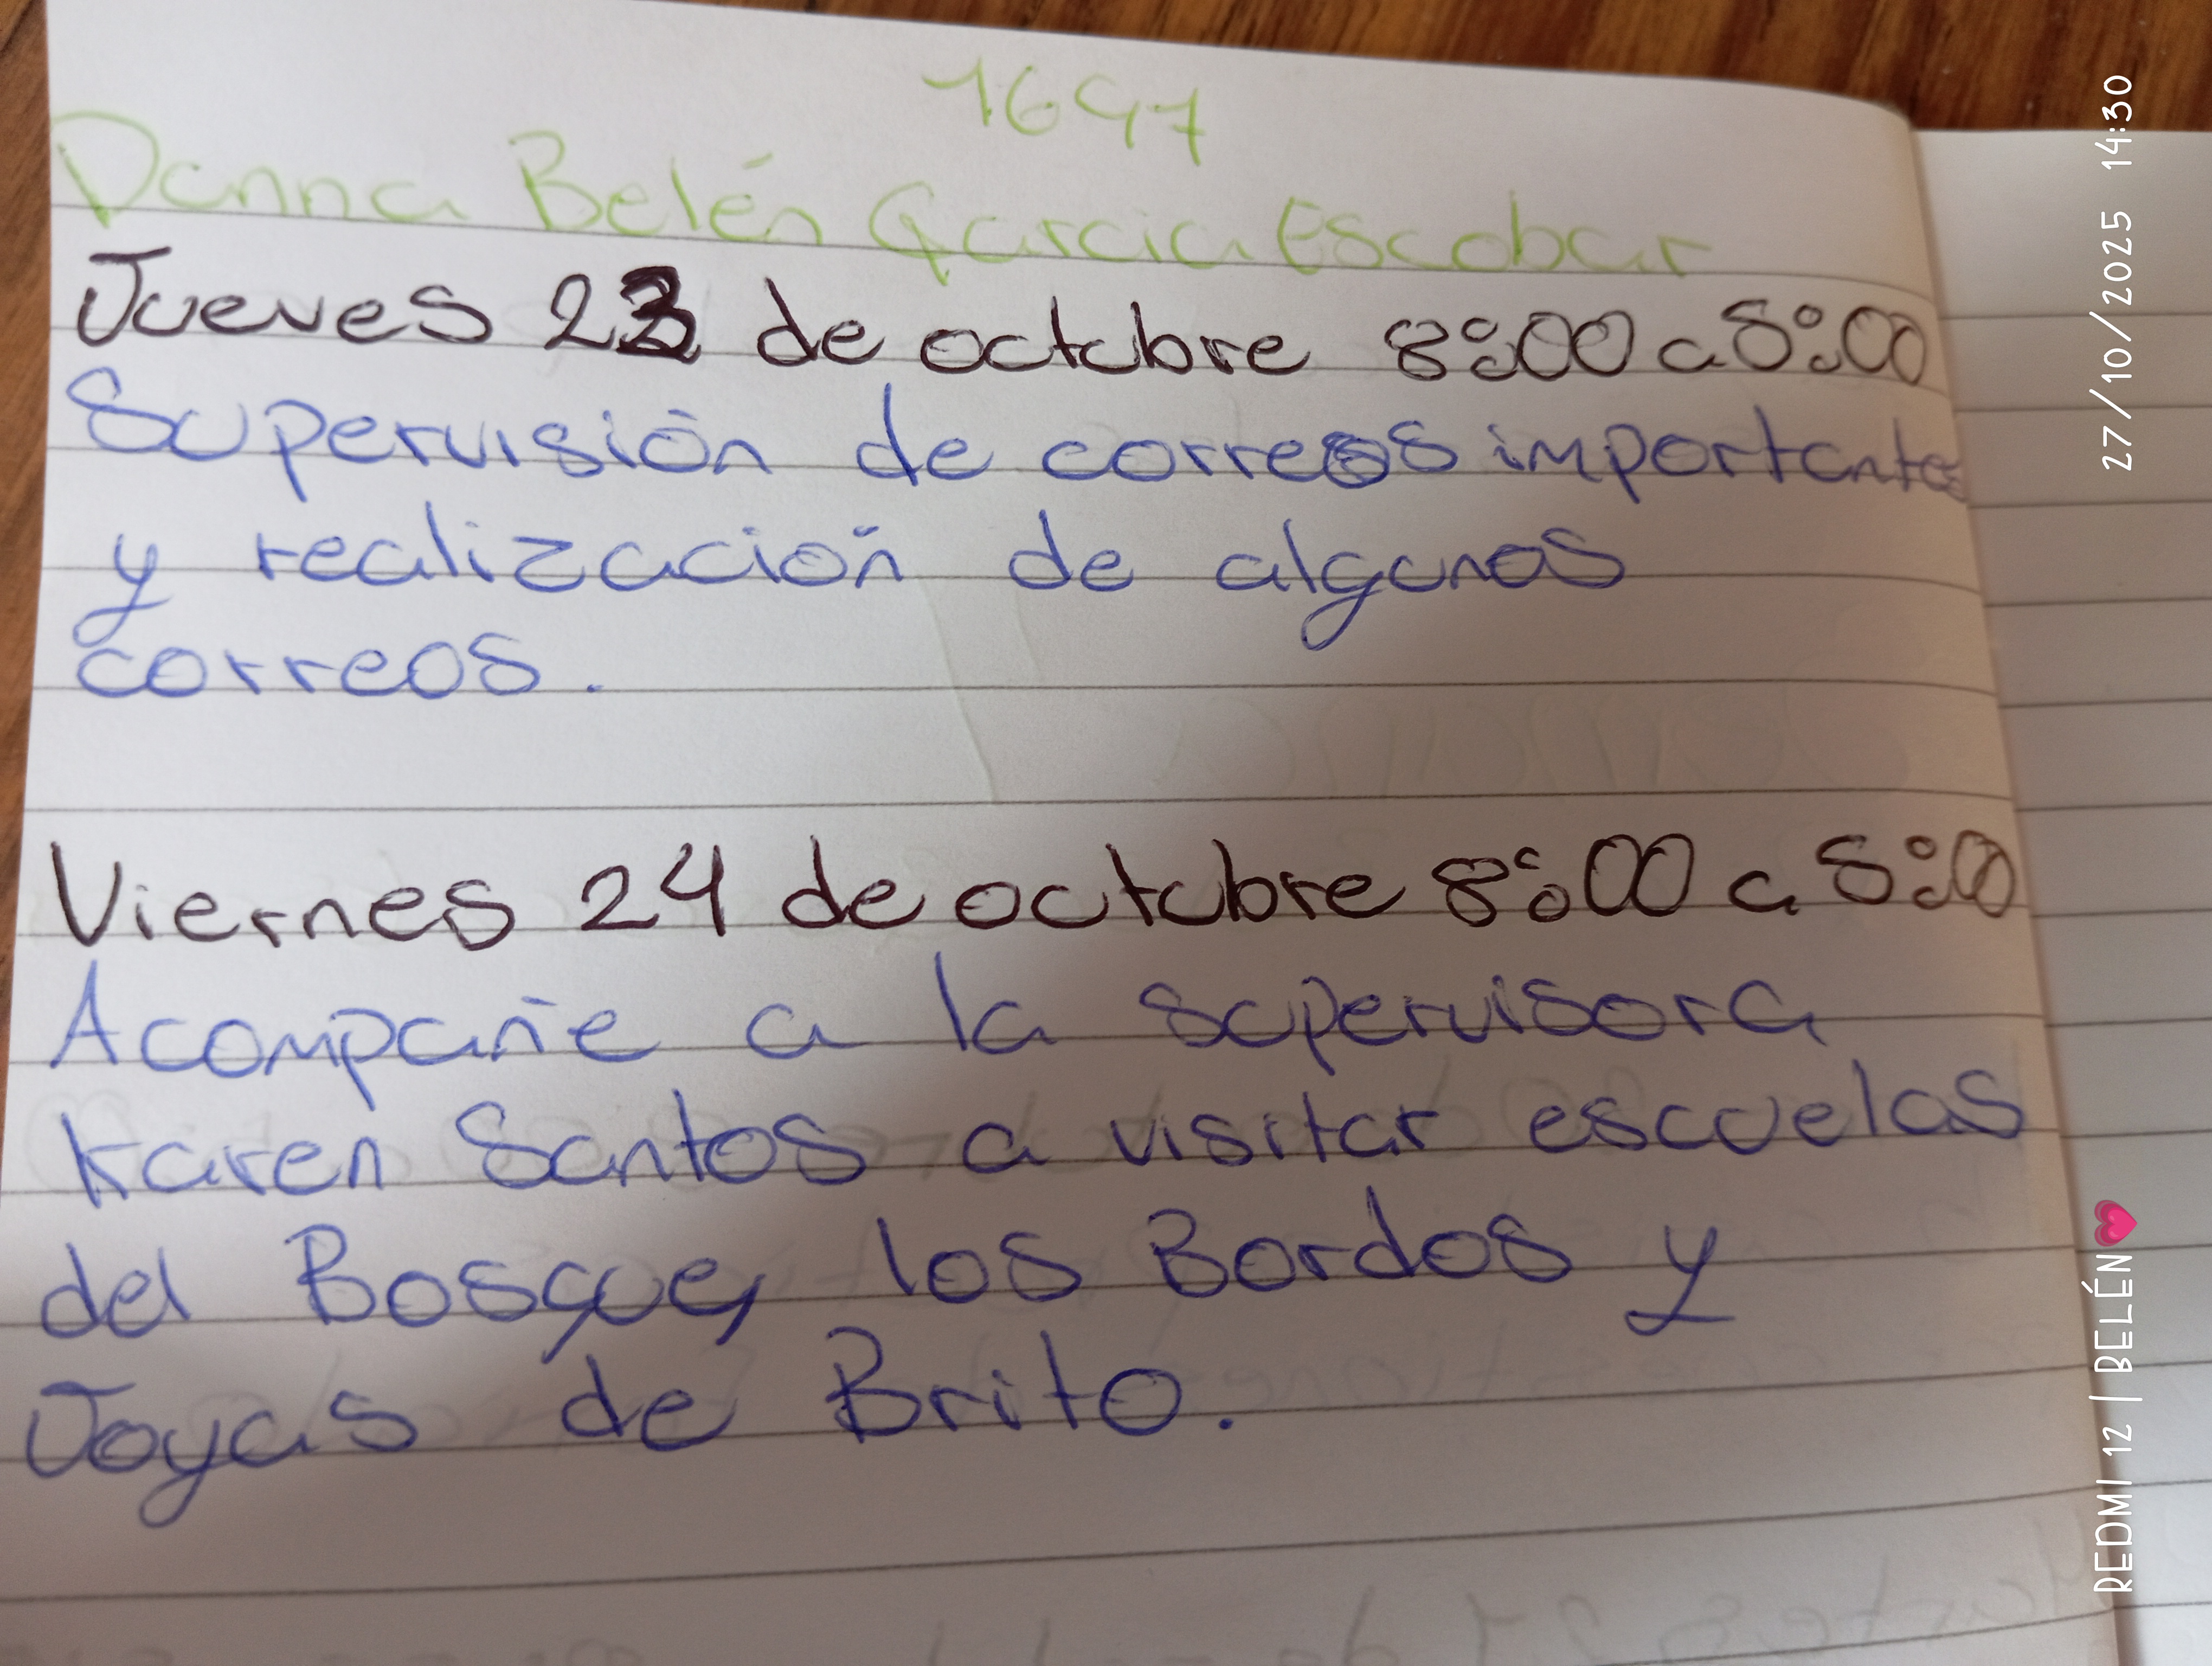 1697
Danna Belén Garcia Escobar
Jueves 23 de octubre 8:00 a 5:00
Supervisión de correos importantes
y realización de algunos
correos.
Viernes 24 de octubre 8:00 a 5:00
Acompañe a la supervisora
Karen Santos a visitar escuelas
del Bosque, los Bordos y
Joyas de Brito.
27/10/2025 14:30
REDMI 12 | BELÉN💗